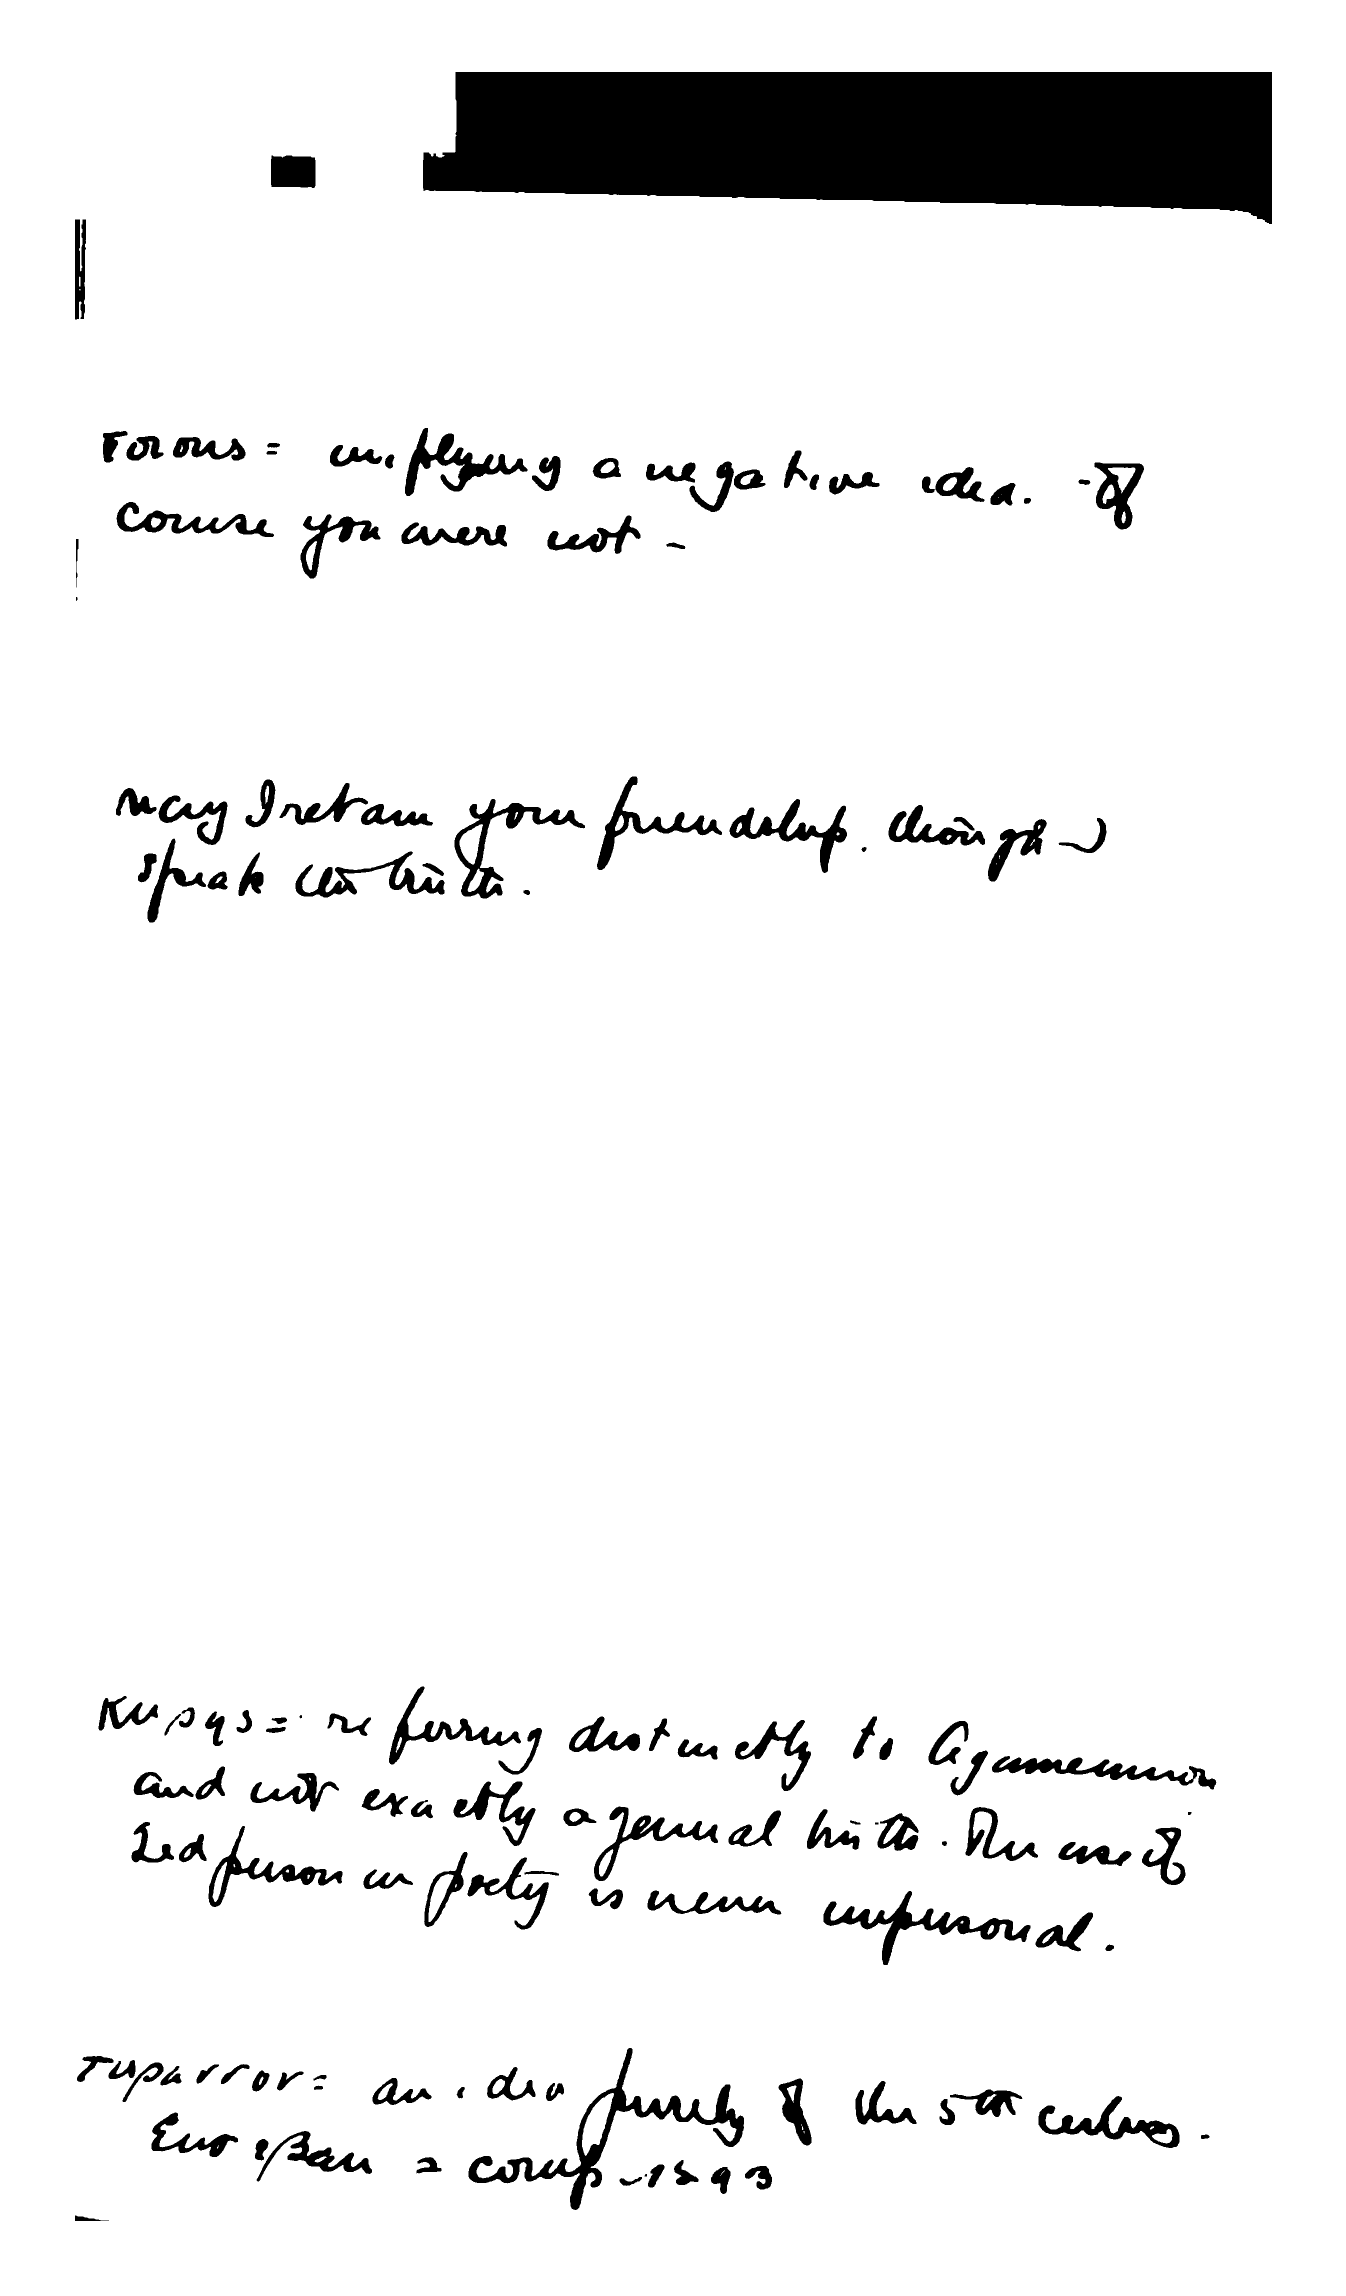 = implying a negative idea. - Of
course you were not -
May I retain your friendship. though I
speak the truth.
= referring distinctly to Agamemnon
and not exactly a general truth. The use of
2nd person in poetry is never impersonal.
τυραννον = an idea purely of the 5th century.
Ευσεβειν = comp - 1293